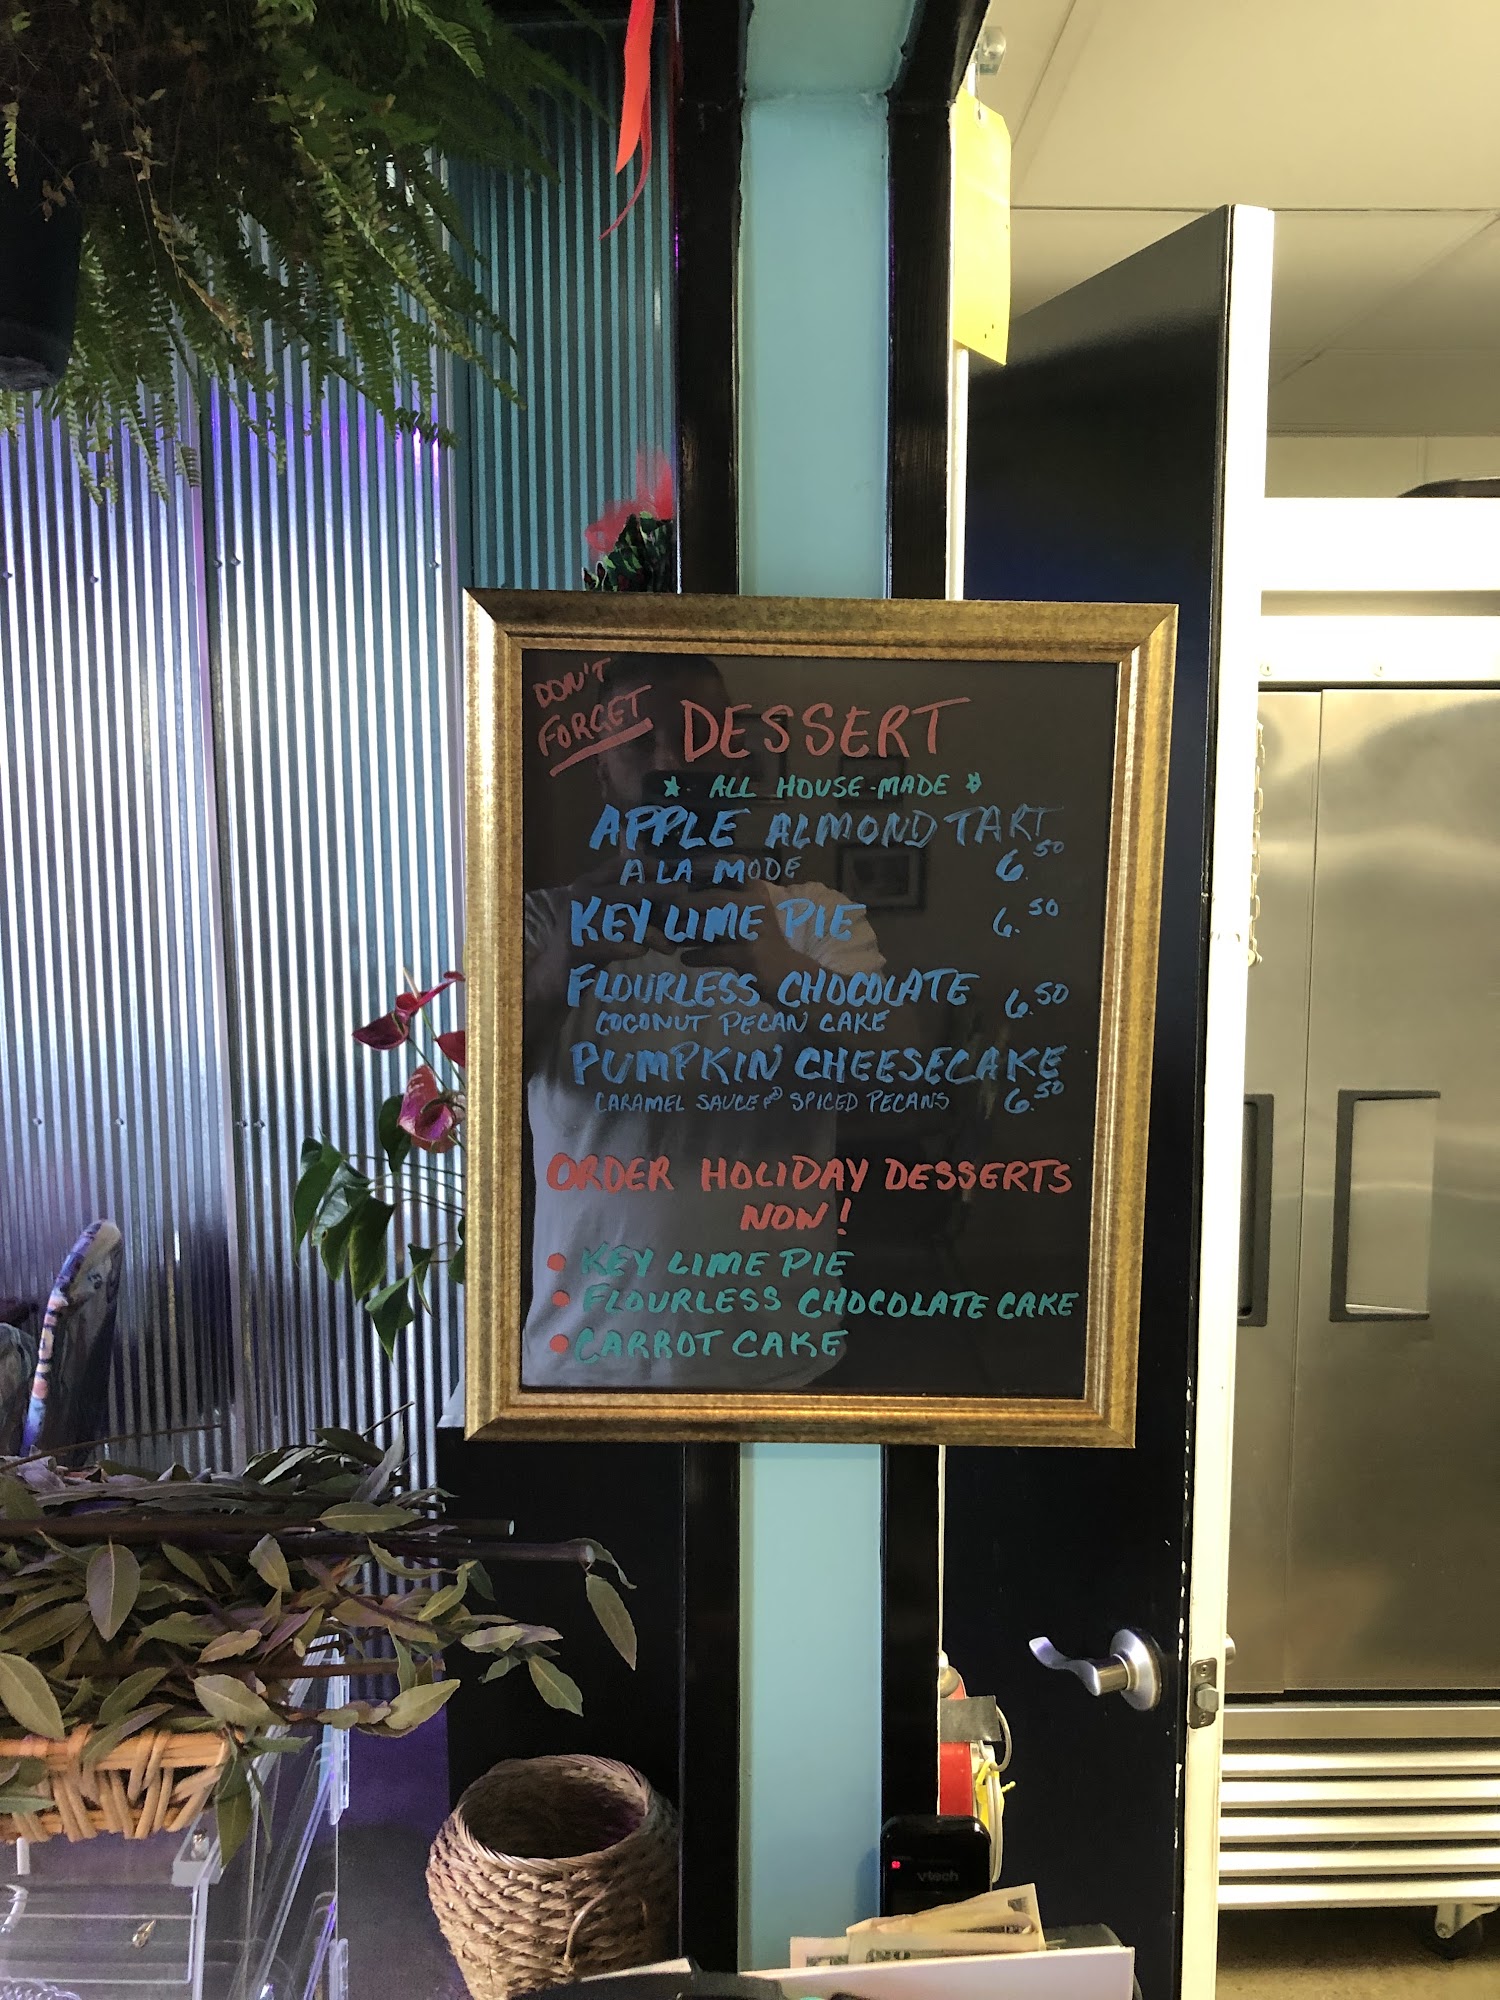 DON'T
FORGET
DESSERT
* ALL HOUSE-MADE *
APPLE ALMOND TART
A LA MODE 6.50
KEY LIME PIE 6.50
FLOURLESS CHOCOLATE 6.50
COCONUT PECAN CAKE
PUMPKIN CHEESECAKE
CARAMEL SAUCE AND SPICED PECANS 6.50
ORDER HOLIDAY DESSERTS
NOW!
• KEY LIME PIE
• FLOURLESS CHOCOLATE CAKE
• CARROT CAKE
vtech